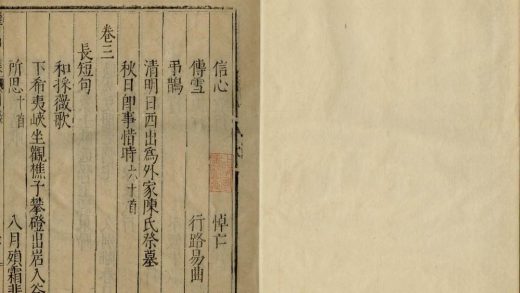 信心 悼亡
傳雪 行路易曲
弔鵲
清明日西出爲外家陳氏祭墓
秋日卽事惜時六十首
卷三
長短句
和採薇歌
下希夷峽坐觀樵子攀磴出岩入谷
所思十首 八月殞霜非